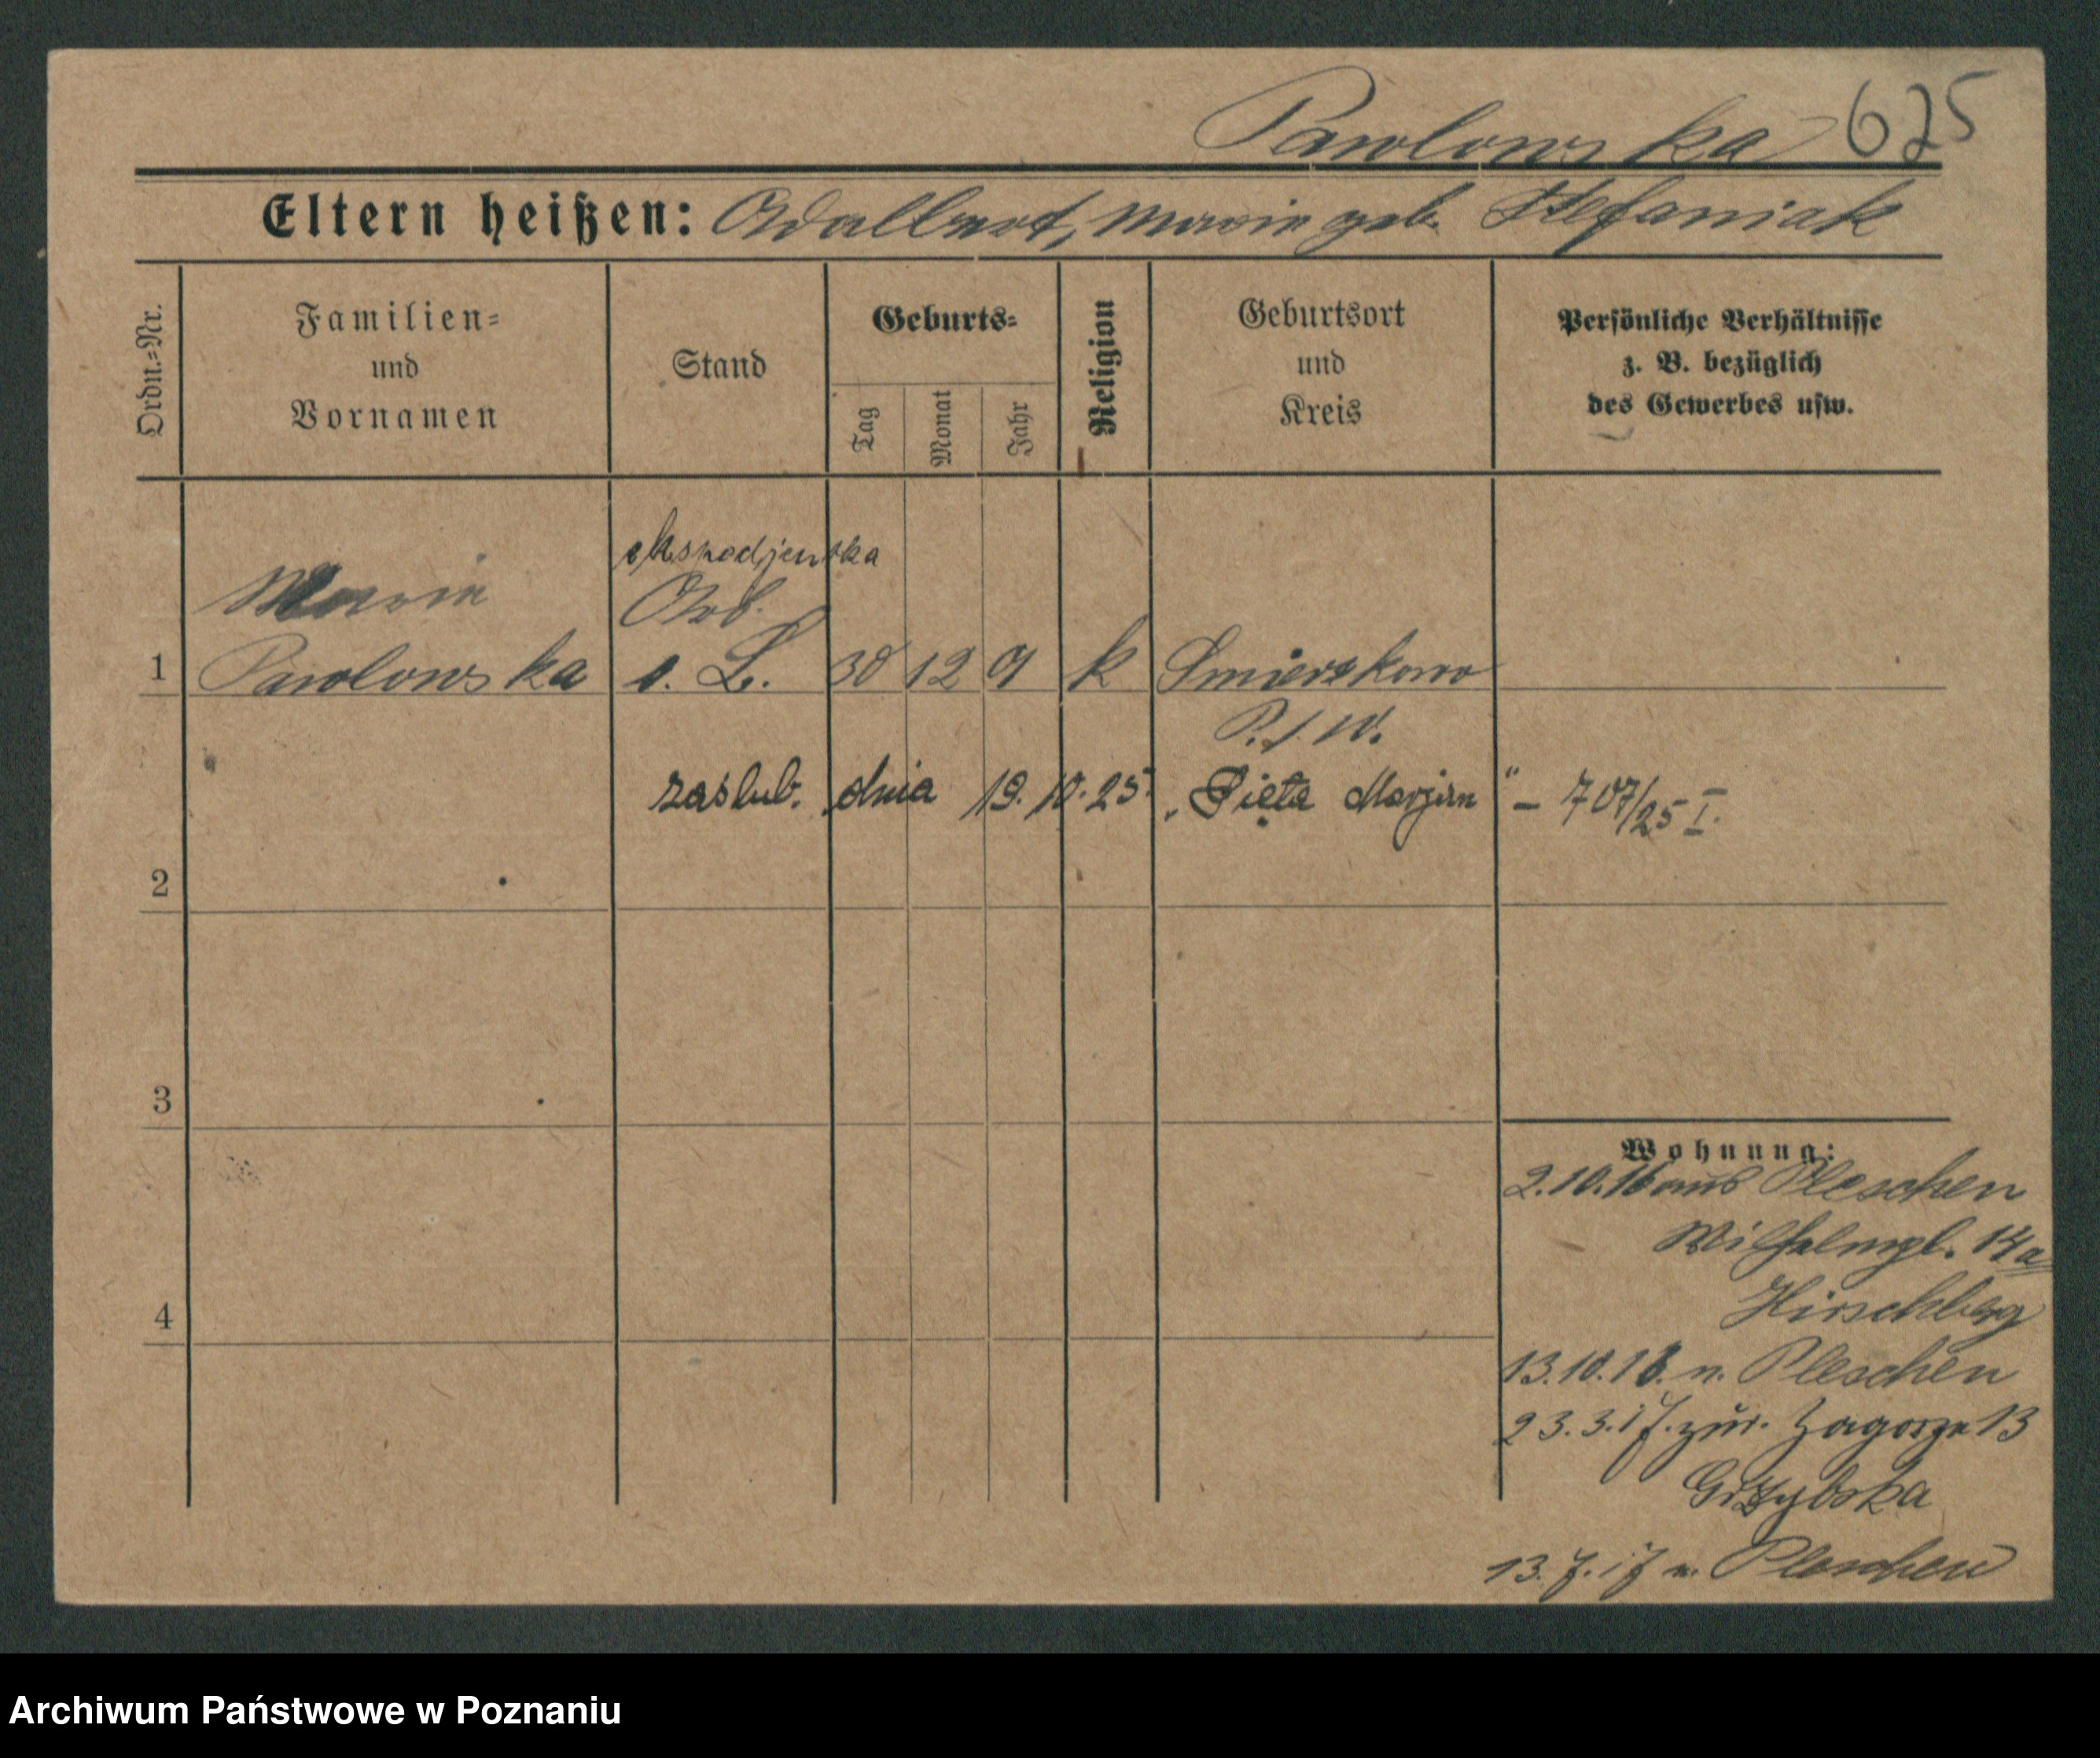 Pawlowska 625
Eltern heißen: Adalbert, Marie geb. Stefaniak
Ordn.=Nr.
Familien=
und
Vornamen
Stand
Geburts=
Tag
Monat
Jahr
Religion
Geburtsort
und
Kreis
Persönliche Verhältnisse
z. B. bezüglich
des Gewerbes usw.
ekspedjentka
Marie
Arb.
1 Pawlowska s. L. 30 12 9 k
zaślub. dnia 19.10.25. „Pięta Marjan" – 707/25 I.
2
3
4
Wohnung:
2.10.16 aus Pleschen
Wilhelmpl. 14a
Hirschberg
13.10.16. n. Pleschen
23.3.17. zur. Zagorze 13
Grzybska
13.7.17 n. Pleschen
Archiwum Państwowe w Poznaniu